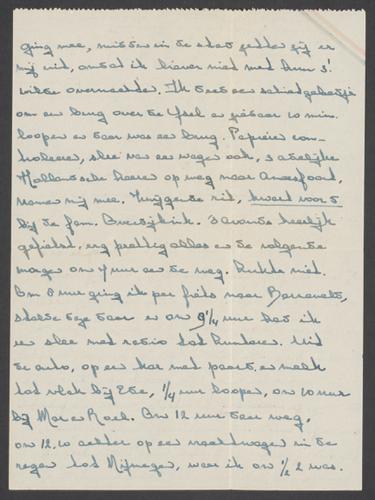 ging mee, midden in de stad zetten zij er
mij uit, omdat ik liever niet met hun 3'
wilde overnachten. Ik deed een schietgebedje
om een brug over de IJsel en gedaan 10 min.
loopen en daar was een brug. Papieren con-
troleeren, slee van een wagen ook, 3 adelijke
Hollandsche heeren op weg naar Amersfoort,
namen mij mee. reed, kwart voor 5
bij de fam. 's avonds heerlijk
gefietst, erg prettig alles en de volgende
morgen om 7 uur aan de weg. niet.
Om 8 uur ging ik per fiets naar Barneveld,
stalde deze daar en om 9 1/4 uur had ik
een slee met tot Lunteren. Uit
de auto, op een kar met paard en melk
tot vlak bij Ede, 1/4 uur loopen, om 10 uur
bij Mar en Roel. Om 12 uur daar weg,
om 12.10 achter op een vrachtwagen in de
regen tot Nijmegen, waar ik om 1/2 2 was.